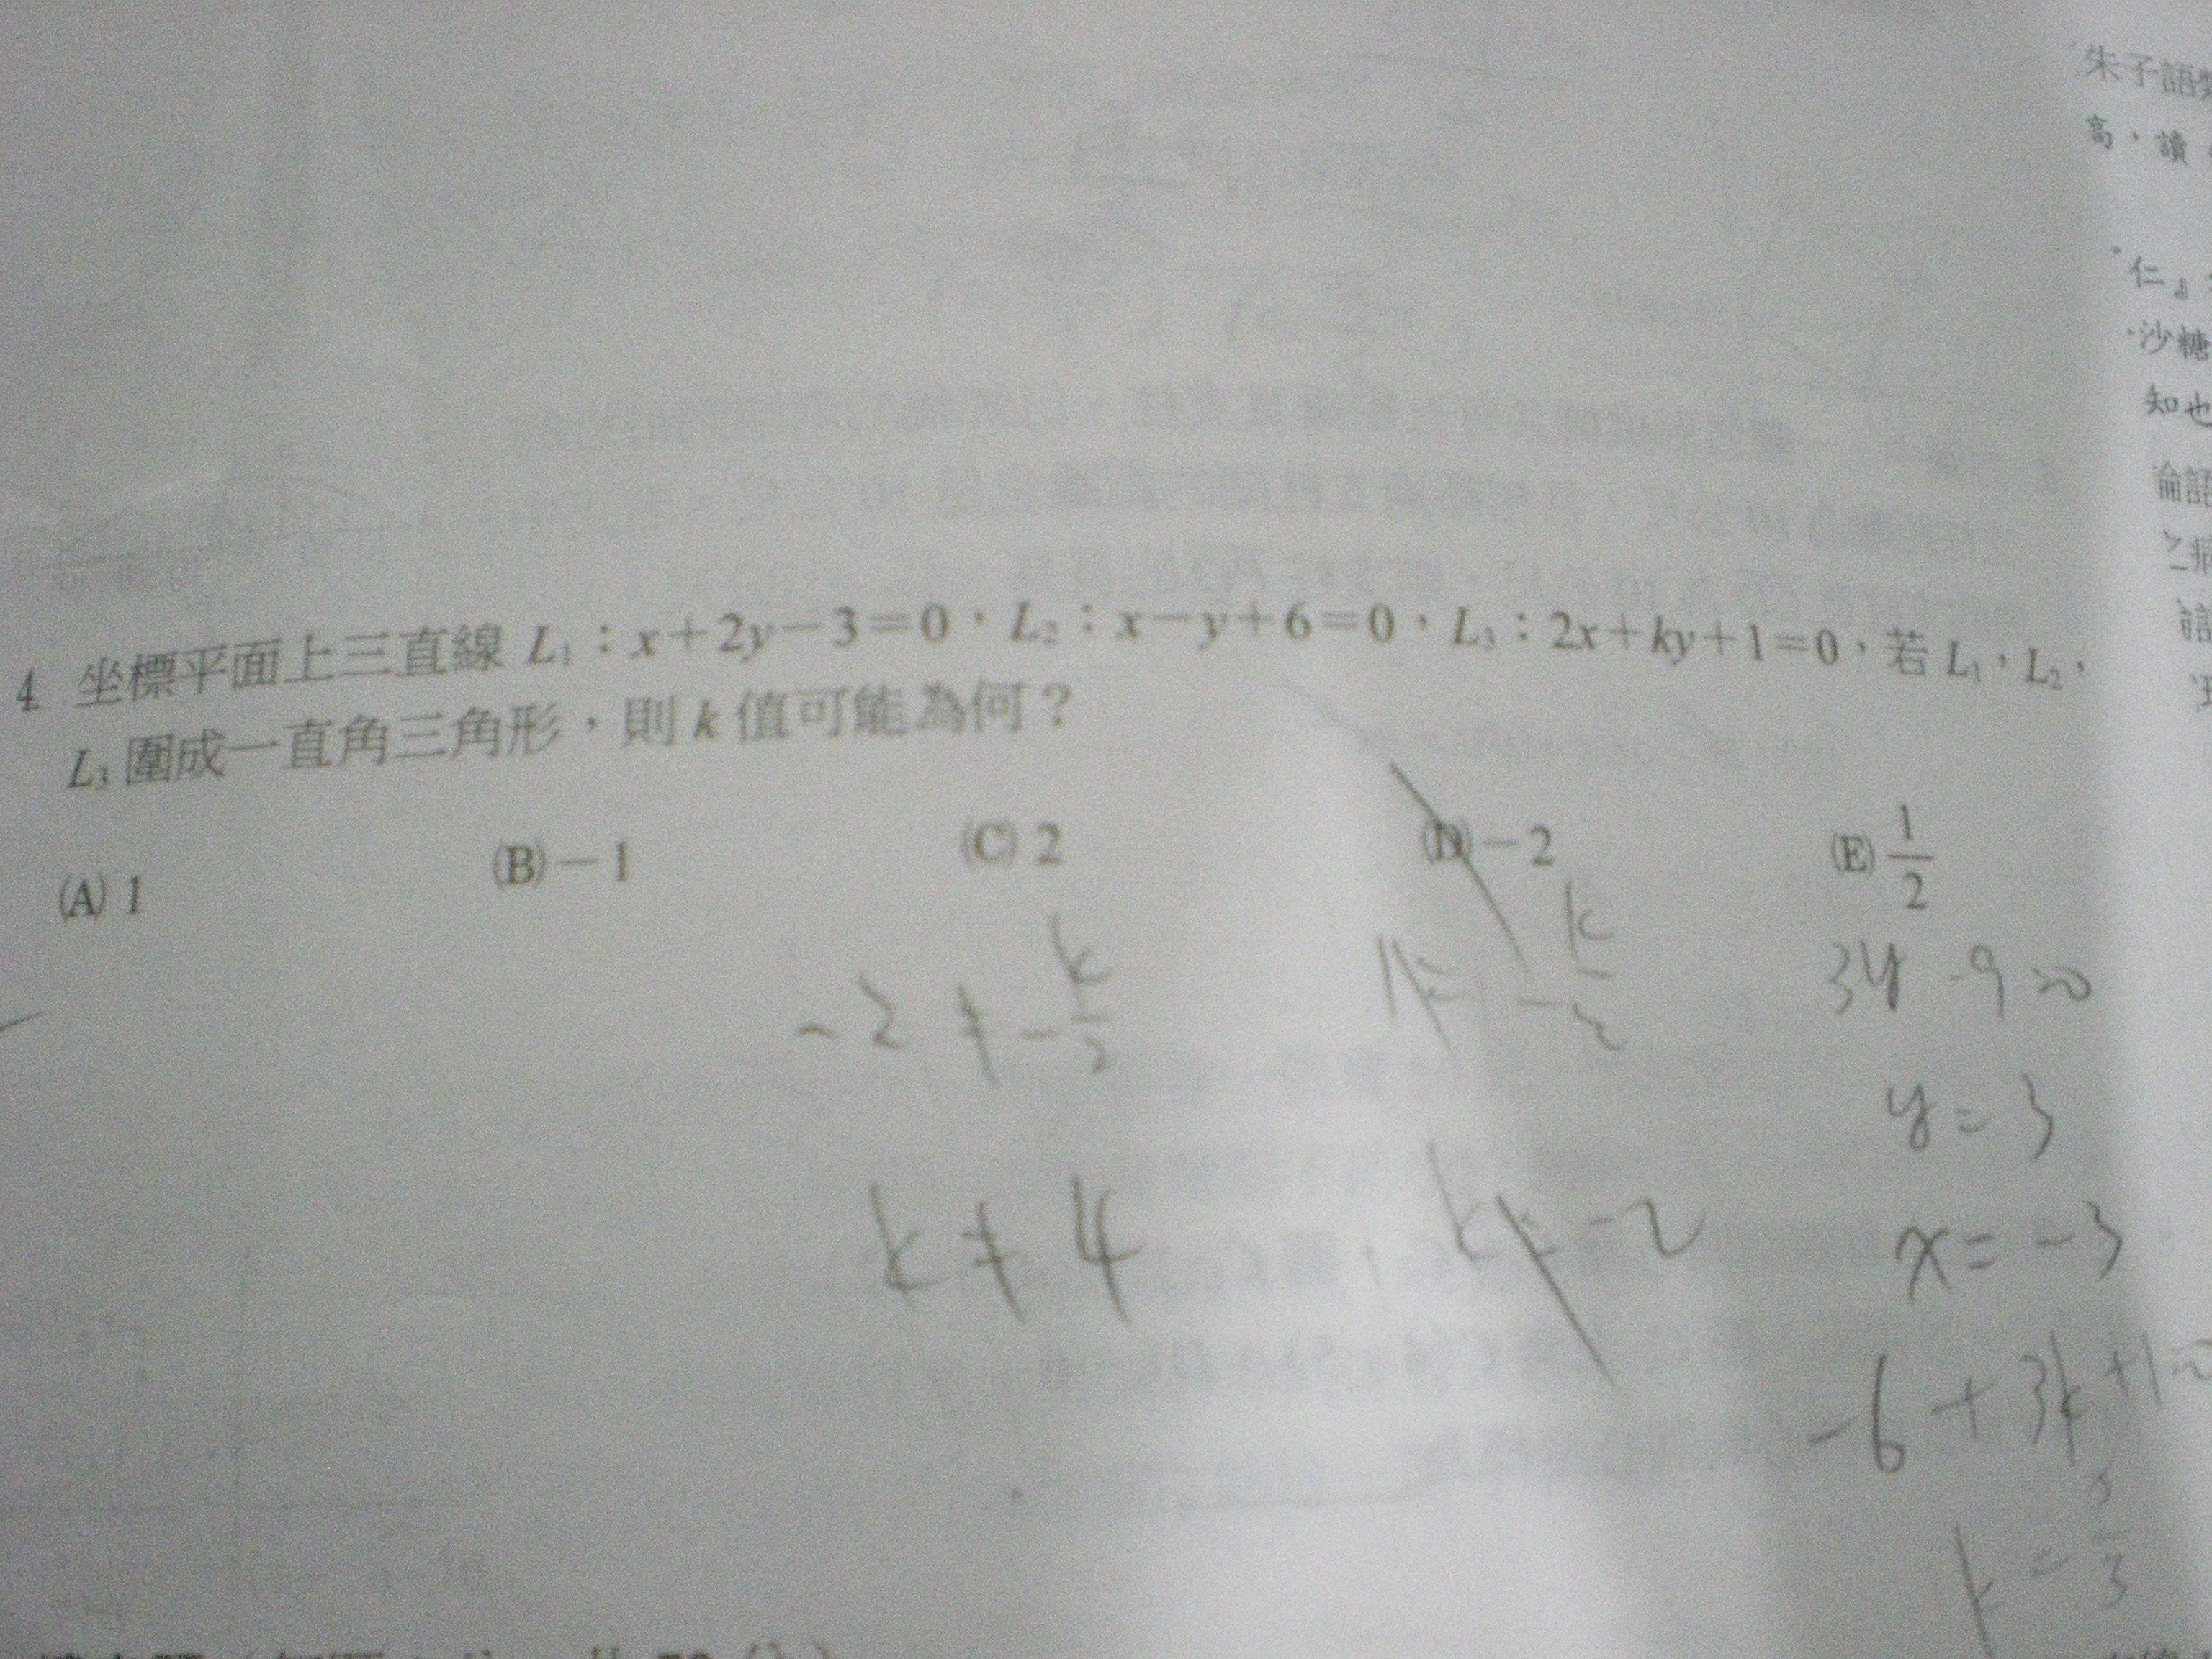 朱子語
高，讀
仁』
沙糖
知也
論語
4. 坐標平面上三直線 L₁：x+2y−3=0，L₂：x−y+6=0，L₃：2x+ky+1=0，若 L₁，L₂，
L₃ 圍成一直角三角形，則 k 值可能為何？
(A) 1 (B) −1 (C) 2 (D) −2 (E) 1/2
−2 ≠ −k/2
k ≠ 4
k ≠ −2
3y −9 =0
y = 3
x = −3
−6 + 3k +1=0
k = 5/3